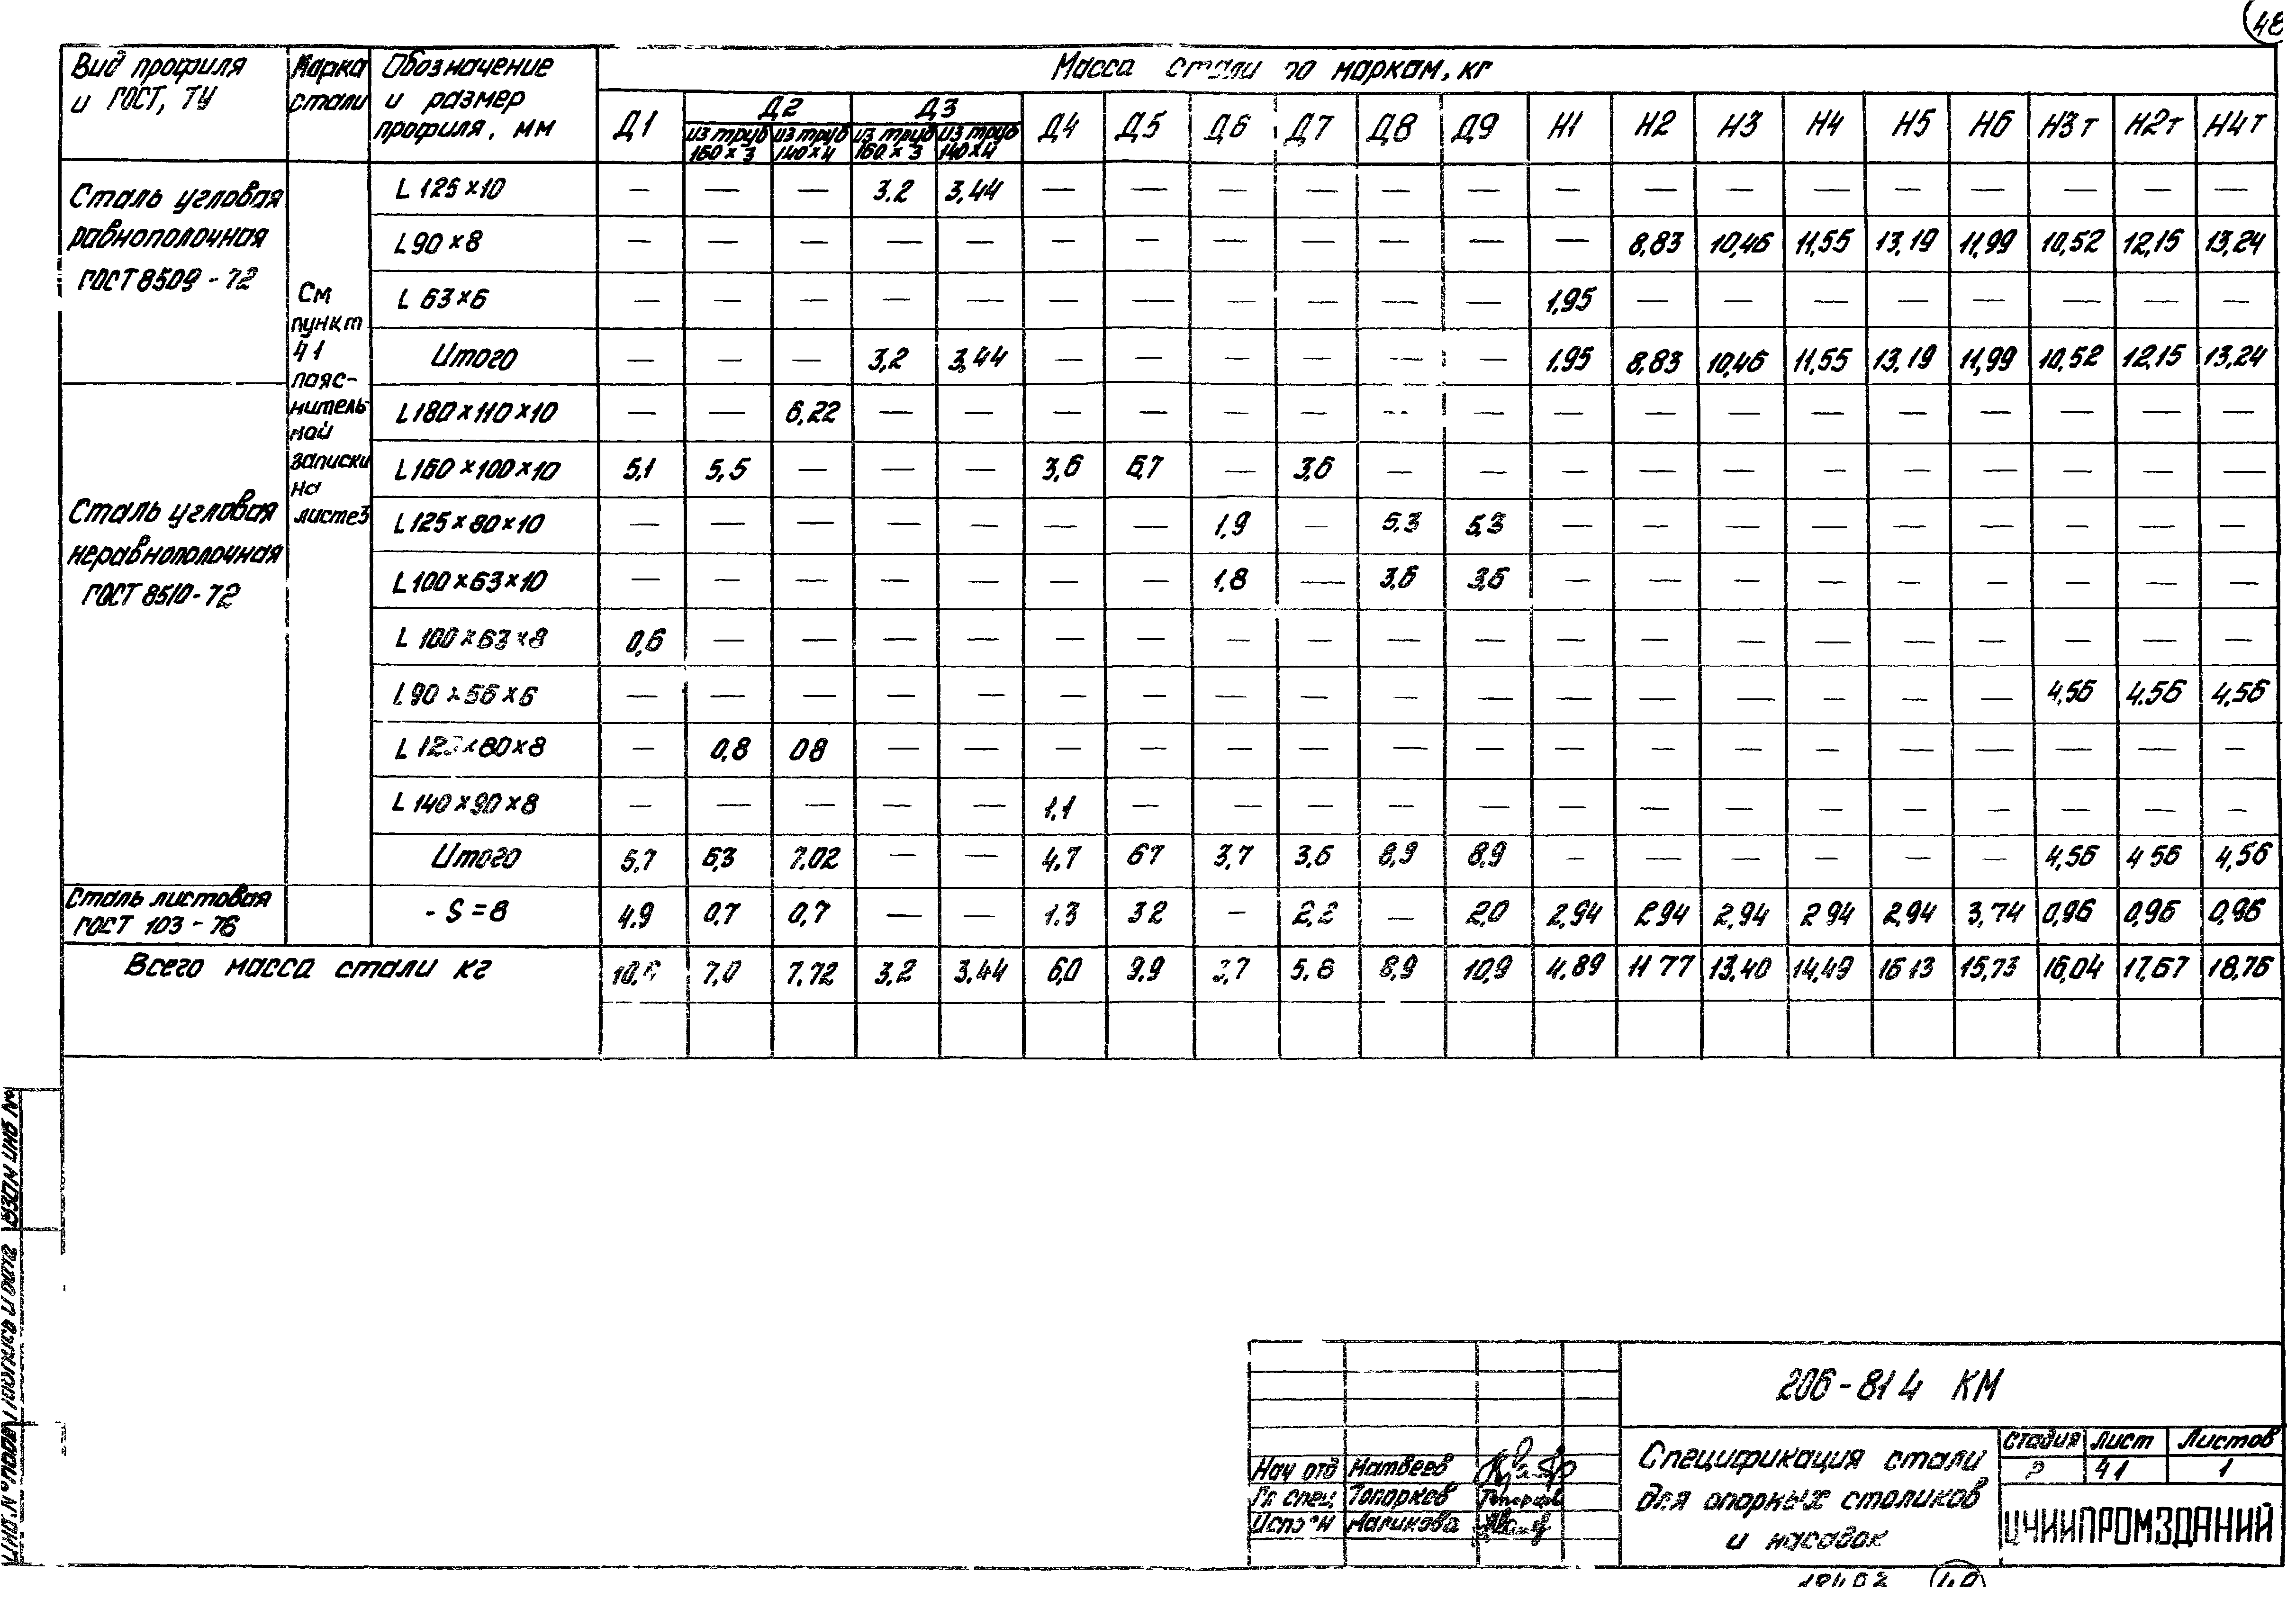 48
Вид профиля и ГОСТ, ТУ
Марка стали
Обозначение и размер профиля, мм
Масса стали по маркам, кг
Д1 Д2 Д3 Д4 Д5 Д6 Д7 Д8 Д9 Н1 Н2 Н3 Н4 Н5 Н6 Н3т Н2т Н4т
из труб 160×3 из труб 140×4 из труб 160×3 из труб 140×4
Сталь угловая равнополочная ГОСТ 8509-72
См пункт 41 пояснительной записки на листе3
L 125×10 — — — 3.2 3,44 — — — — — — — — — — — — — — —
L 90×8 — — — — — — — — — — — — 8,83 10,46 11,55 13,19 11,99 10,52 12,15 13,24
L 63×6 — — — — — — — — — — — 1,95 — — — — — — — —
Итого — — — 3,2 3,44 — — — — — — 1.95 8,83 10,46 11,55 13,19 11,99 10,52 12,15 13,24
Сталь угловая неравнополочная ГОСТ 8510-72
L180×110×10 — — 6,22 — — — — — — — — — — — — — — — — —
L160×100×10 5,1 5,5 — — — 3,6 6,7 — 3,6 — — — — — — — — — — —
L125×80×10 — — — — — — — 1,9 — 5,3 5,3 — — — — — — — — —
L100×63×10 — — — — — — — 1,8 — 3,6 3,6 — — — — — — — — —
L 100×63×8 0,6 — — — — — — — — — — — — — — — — — — —
L90×56×6 — — — — — — — — — — — — — — — — — 4,56 4.56 4,56
L 125×80×8 — 0,8 08 — — — — — — — — — — — — — — — — —
L 140×90×8 — — — — — 1,1 — — — — — — — — — — — — — —
Итого 5,7 6,3 7.02 — — 4.7 67 3,7 3,6 8,9 8,9 — — — — — — 4,56 4 56 4,56
Сталь листовая ГОСТ 103-76
- S=8 4.9 0,7 0,7 — — 1.3 32 — 2,2 — 2,0 2,94 2,94 2,94 2 94 2,94 3,74 0,96 0,96 0,96
Всего масса стали кг 10,6 7,0 7.72 3,2 3,44 6,0 9.9 3,7 5,8 8,9 10,9 4.89 11 77 13,40 14,49 16 13 15,73 16,04 17,67 18,76
206-81 4 КМ
Спецификация стали для опорных столиков и насадок
Стадия Лист Листов
Р 41 1
ЦНИИПРОМЗДАНИЙ
Нач отд Матвеев
Гл спец Топорков
Исполн Маликова
Инв.№ подл. Подпись и дата Взам инв №